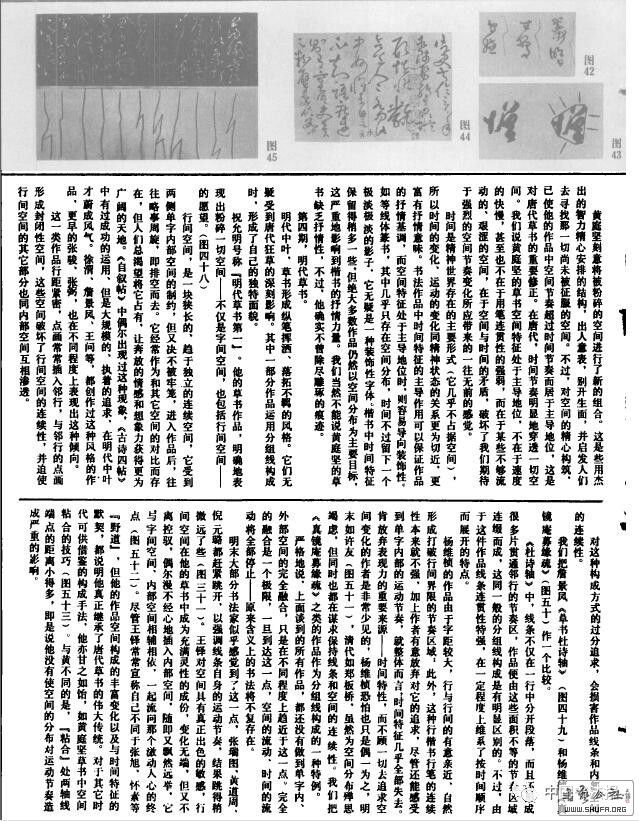 图42
图43
图44
图45
黄庭坚刻意将被粉碎的空间进行了新的组合。这是些用杰
出的智力精心安排的结构,出人意表,别开生面,并启发人们
去寻找那一切尚未被征服的空间。不过,对空间的精心构筑,
已使他的作品中空间节奏超过时间节奏而居于主导地位,这是
对唐代草书的重要修正。在唐代,时间节奏明显地穿透一切空
间。我们说黄庭坚的草书空间特征处于主导地位,不在于速度
的快慢,甚至也不在于用笔连贯性的强弱,而在于某些不够流
动的、艰涩的空间,在于空间与时间的矛盾,破坏了我们期待
于强烈的空间节奏变化所应带来的一往无前的感觉。
时间是精神世界存在的主要形式(它几乎不占据空间),
所以时间的变化、运动的变化同精神状态的关系更为切近,更
富有抒情意味。书法作品中时间特征的主导作用可以保证作品
的抒情基调,而空间特征处于主导地位时,则容易导向装饰性。
如等线体篆书,其中几乎只存在空间分布,时间不过留下一个
极淡极淡的影子,它无疑是一种装饰性字体。楷书中时间特征
保留得稍多一些,但绝大多数作品仍然以空间分布为主要目标,
这严重地影响到楷书的抒情力量。我们当然不能说黄庭坚的草
书缺乏抒情性,不过,他确实不曾除尽雕琢的痕迹。
第四期,明代草书。
明代中叶,草书形成纵笔挥洒、落拓不羁的风格。它们无
疑受到唐代狂草的深刻影响。其中一部分作品运用分组线构成
时,形成了自己的独特面貌。
祝允明号称『明代草书第一』,他的草书作品,明确地表
现出粉碎一切空间——不仅是字间空间,也包括行间空间——
的愿望。(图四十八)
行间空间,是一块狭长的、趋于独立的连续空间,它受到
两侧单字内部空间的制约,但又决不被牢笼,进入作品后,往
往略事周旋,即排空而去。它经常作为和其它空间的对比而存
在,但人们总渴望将它占有,让奔放的情感和想象力获得更为
广阔的天地。《自叙帖》中偶尔出现过这种现象,《古诗四帖》
中有过成功的运用,但是大规模的、执着的追求,在明代中叶
才蔚成风气。徐渭、詹景凤、王问等,都创作过这种风格的作
品,更早的张骏、张弼,也在不同程度上表现出这种倾向。
这一类作品行距紧密,点画常常插入邻行,与邻行的点画
形成封闭性空间,这些空间破坏了行间空间的连续性,并迫使
行间空间的其它部分也同内部空间互相渗透。
对这种构成方式的过分追求,会损害作品线条和内
的连续性。
我们把詹景凤《草书杜诗轴》(图四十九)和杨维
镜庵募缘疏》(图五十)作一个比较。
《杜诗轴》中,线条不仅在一行中分开段落,而且
很多片贯通邻行的节奏区,作品便由这些面积不等的节 区域
连缀而成,这同一般的分组线构成是有明显区别的。不过,由
于这件作品线条的连贯性特强,在一定程度上维系了按时间顺序
而展开的特点。
杨维桢的作品由于字距较大,行与行间的有意亲近,自然
形成打破行间界限的节奏区域,此外,这种行楷书行笔的连续
性本来就不强,加上作者有意放弃对它的追求,尽管还能感受
到单字内部的运动节奏,就整体而言,时间特征几乎全部失去。
肯放弃表现力的重要来源——时间特征,而不顾一切去追求空
间变化的作者是非常少见的,杨维桢恐怕也只是偶一为之,明
末如许友(图五十一),清代如郑板桥,虽然为空间分布殚思
竭虑,但同时也都在谋求保持线条和空间的连续性。我们把
《真镜庵募缘疏》之类的作品作为分组线构成的一种特例。
严格地说,上面谈到的所有作品,都还没有做到单字内、
外部空间的完全融合,只是在不同程度上趋近于这一点。完全
的融合是一个极限,一旦到达这一点,空间的流动,时间的流
动将全部停止,原来含义上的书法将不复存在。
明末大部分书法家似乎感觉到了这一点,张瑞图、黄道周、
倪元璐都赶紧跳开,以强调线条自身的运动节奏,结果跳得稍
微远了些(图三十一)。王铎对空间具有真正出色的敏感,行
间空间在他的草书中成为充满灵性的成份,变化无端,但又不
离控驭,偶尔漫不经心地插入内部空间,随即又飘然远举,它
与字间空间、内部空间相辅相依,一起流向那个激动人心的终
点(图五十二)。尽管王铎常常宣称自己不同于张旭、怀素等
『野道』,但他的作品空间构成的丰富变化以及与时间特征的
默契,都说明他真正继承了唐代草书的伟大传统。对于其它时
代可供借鉴的构成手法,他亦甘之如饴,如黄庭坚草书中空间
粘合的技巧(图五十三)。与黄不同的是,『粘合』处两轴线
端点的距离小得多,即是说他没有使空间的分布对运动节奏造
成严重的影响。
WWW.SHUFA.ORG